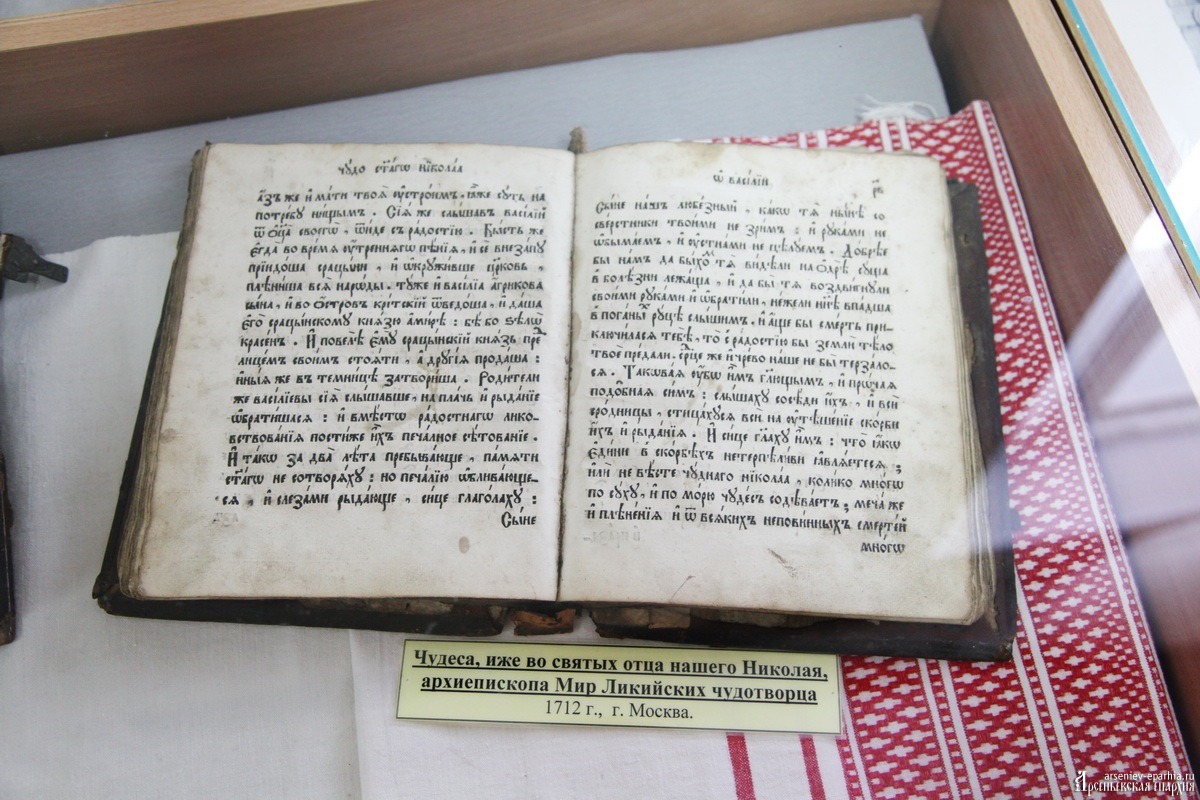 чꙋ́до ст҃а́гѡ нїко́лаа
а҆́зъ же и҆ ма́ти твоѧ̀ ᲂу҆стро́имъ, ꙗ҆̀же сꙋ́ть на
потре́бꙋ ни́щымъ. Сїѧ̑ же слы́шавъ васі́лїй
ѿ ѻ҆тца̀ своегѡ̀, ѿи́де съ ра́достїю. Бы́сть же
є҆гда̀ во вре́мѧ ᲂу҆́треннѧгѡ пѣ́нїѧ, и҆ сѐ внеза́пꙋ
прїидо́ша срацы́ни, и҆ ѡ҆крꙋжи́вше цр҃ковь,
плѣни́ша всѧ̑ наро́ды. тꙋ́же и҆ васі́лїа а҆гри́кова
сы́на, и҆ во ѻ҆́стровъ кри́тскїй ѿведо́ша, и҆ да́ша
є҆го̀ срацы́нскомꙋ кнѧ́зю а҆ми́рѣ: бѣ̀ бо ѕѣлѡ̀
красе́нъ. И҆ повелѣ̀ є҆мꙋ̀ срацы́нскїй кнѧ́зь пре́д
лице́мъ свои́мъ стоѧ́ти, а҆ дрꙋгі́ѧ прода́ша:
и҆ны́ѧ же въ темни́цѣ затвори́ша. Роди́тели
же васі́лїевы сїѧ̑ слы́шавше, на пла́чь и҆ рыда́нїе
ѡ҆брати́шасѧ: и҆ вмѣ́стѡ ра́достнагѡ лико-
вствова́нїѧ пости́же и҆̀хъ печа́лное сѣ́тованїе.
И҆ та́кѡ за два̀ лѣ̑та пребыва́юще, па́мѧти
ст҃а́гѡ не сотворѧ́хꙋ: но печа́лїю ѡ҆блива́юще-
сѧ, и҆ слеза́ми рыда́юще, си́це глаго́лахꙋ:
Сы́не
ѡ҆ васі́лїи
рв
Сы́не на́шъ любе́зный, ка́кѡ тѧ̀ ны́нѣ со
све́рстники твои́ми не зри́мъ: и҆ рꙋка́ми не
ѡ҆б̾ыма́емъ, и҆ ᲂу҆стна́ми не цѣлꙋ́емъ. До́брѣе
бы на́мъ да бы́хомъ тѧ̀ ви́дѣли на ѻ҆дрѣ̀ сꙋ́ща
в болѣ́зни лежа́ща, и҆ да бы тѧ̀ воздви́гнꙋли
свои́ми рꙋка́ми и҆ ѡ҆брати́ли, не́жели нн҃ѣ впа́дша
в пога́ны́хъ рꙋ́цѣ слы́шимъ. и҆ а҆́ще бы сме́рть при-
ключи́ласѧ тебѣ̀, то с ра́достїю бы землѝ тѣ́ло
твоѐ пре́дали. ср҃це же и҆ чре́во на́ше не бы̀ терза́ло-
сѧ. Такѡва́ѧ ᲂу҆́бѡ и҆̀мъ гл҃ющымъ, и҆ прѡ́чаѧ
подѡ́бнаѧ си̑мъ: слы́шахꙋ сосѣ́ди и҆́хъ, и҆ всѝ
сро́дницы, стица́хꙋсѧ всѝ на ᲂу҆тѣше́нїе ско́рби
и҆́хъ и҆ рыда́нїѧ. И҆ си́це гл҃ахꙋ и҆̀мъ: что̀ та́кѡ
є҆ди́не в ско́рбѣхъ нетерпѣли́ви ꙗ҆влѧ́етесѧ;
и҆лѝ не вѣ́сте чꙋ́днаго нїко́лаа, коли́ко мно́гѡ
по сꙋ́хꙋ, и҆ по мо́рю чꙋде́съ содѣва́етъ; меча́ же
и҆ плѣне́нїѧ и҆ ѿ всѧ́кихъ непови́нныхъ сме́ртей
мно́гѡ
Чудеса, иже во святых отца нашего Николая,
архиепископа Мир Ликийских чудотворца
1712 г., г. Москва.
arseniev-eparhia.ru
Арсеньевская епархия